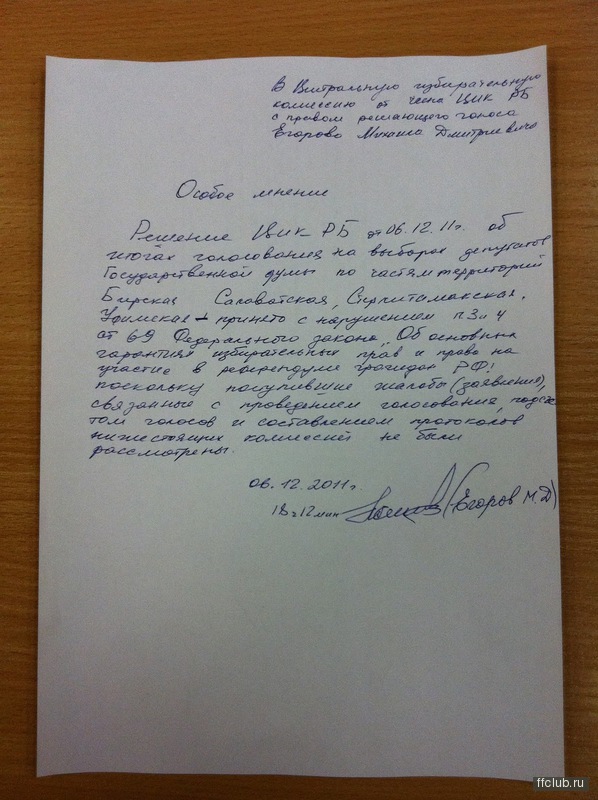 В Центральную избирательную
комиссию от члена ЦИК РБ
с правом решающего голоса
Егорова Михаила Дмитриевича
Особое мнение
Решение ЦИК РБ от 06.12.11г. об
итогах голосования на выборах депутатов
Государственной думы по частям территорий
Бирская Салаватская, Стерлитамакская,
Уфимская – принято с нарушением п 3 и 4
ст 69 Федерального закона „Об основных
гарантиях избирательных прав и права на
участие в референдуме граждан РФ",
поскольку поступившие жалобы (заявления),
связанные с проведением голосования, подсче
том голосов и составлением протоколов
нижестоящих комиссий не были
рассмотрены.
06.12.2011г.
18ч 12 мин (Егоров М.Д)
ffclub.ru